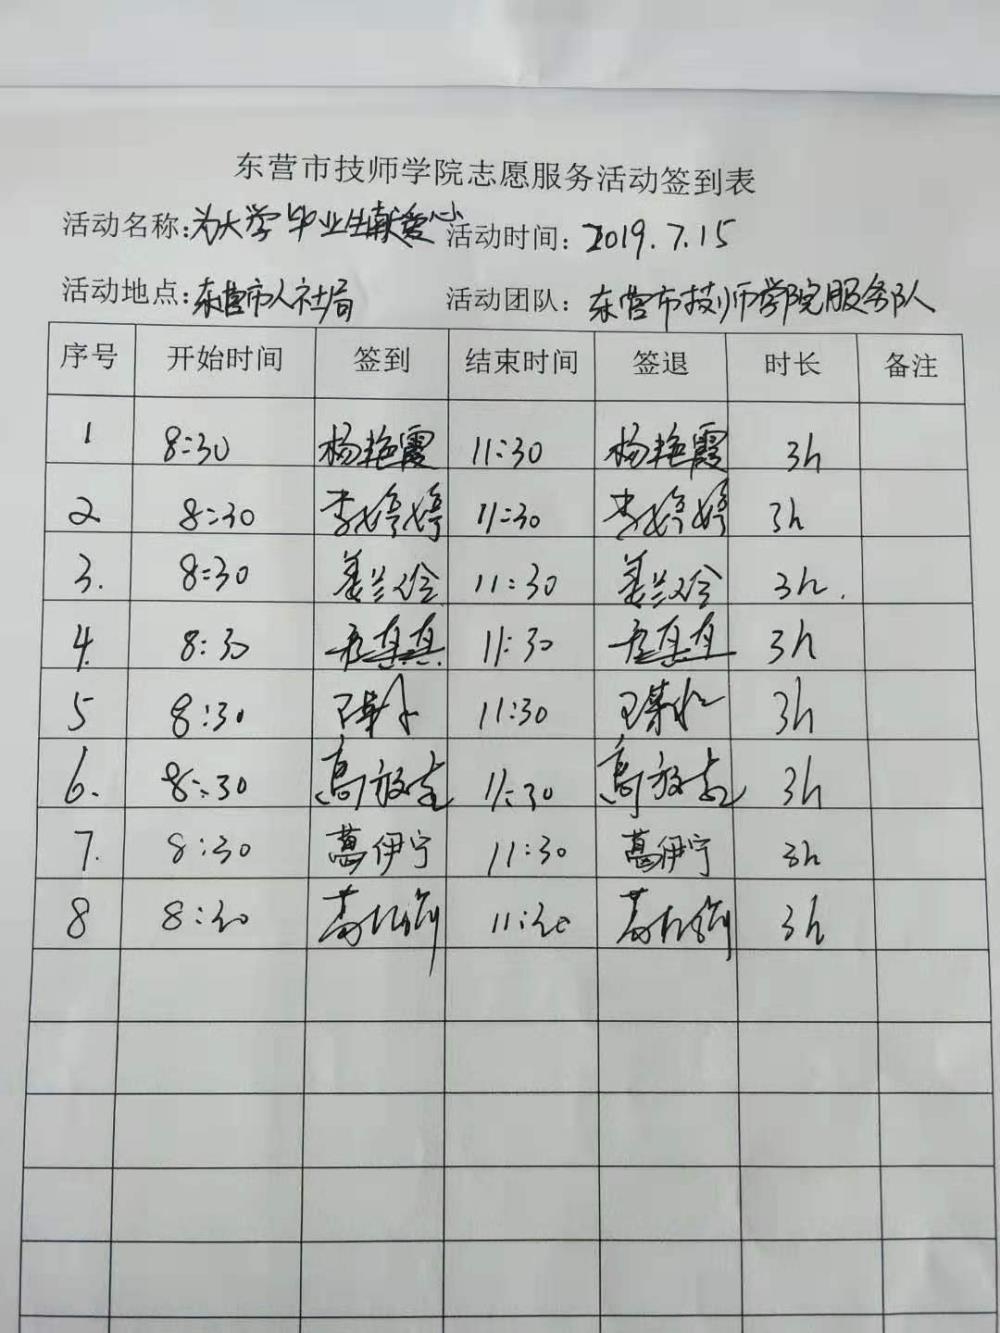 东营市技师学院志愿服务活动签到表
活动名称:为大学毕业生献爱心 活动时间: 2019.7.15
活动地点:东营市人社局 活动团队: 东营市技师学院服务队
序号 开始时间 签到 结束时间 签退 时长 备注
1 8:30 杨艳霞 11:30 杨艳霞 3h
2 8:30 李婷婷 11:30 李婷婷 3h
3. 8:30 姜兰 11:30 姜兰 3h.
4. 8:30 真真 11:30 真真 3h
5 8:30 王 11:30 王 3h
6. 8:30 高 11:30 高 3h
7. 8:30 葛伊宁 11:30 葛伊宁 3h
8 8:30 11:30 3h